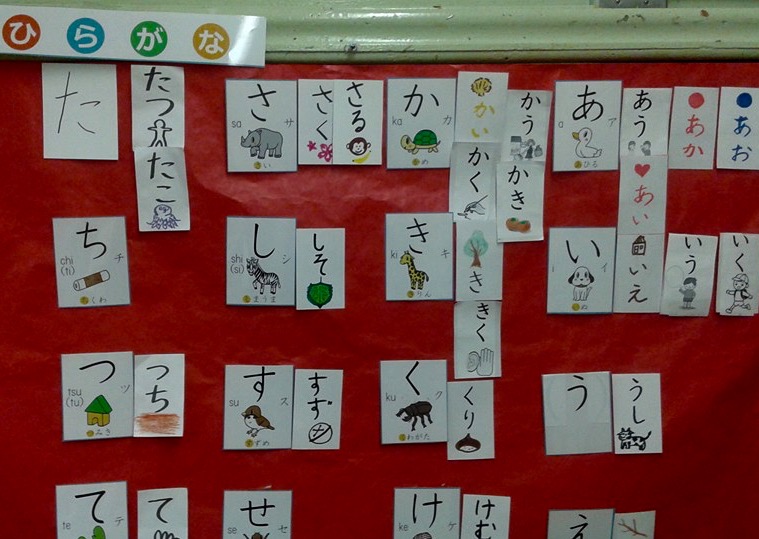 ひらがな
た
たつ
たこ
さ
sa サ
さい
さく
さる
か
ka カ
かめ
かい
かう
かく
かき
あ
a ア
あひる
あう
あか
あお
あい
ち
chi チ
(ti)
ちくわ
し
shi シ
(si)
しまうま
しそ
き
ki キ
きりん
き
きく
い
i イ
いぬ
いえ
いう
いく
つ
tsu ツ
(tu)
つみき
つち
す
su ス
すずめ
すず
く
ku ク
くわがた
くり
う
うし
て
te テ
て
せ
se セ
け
ke ケ
けむ
え